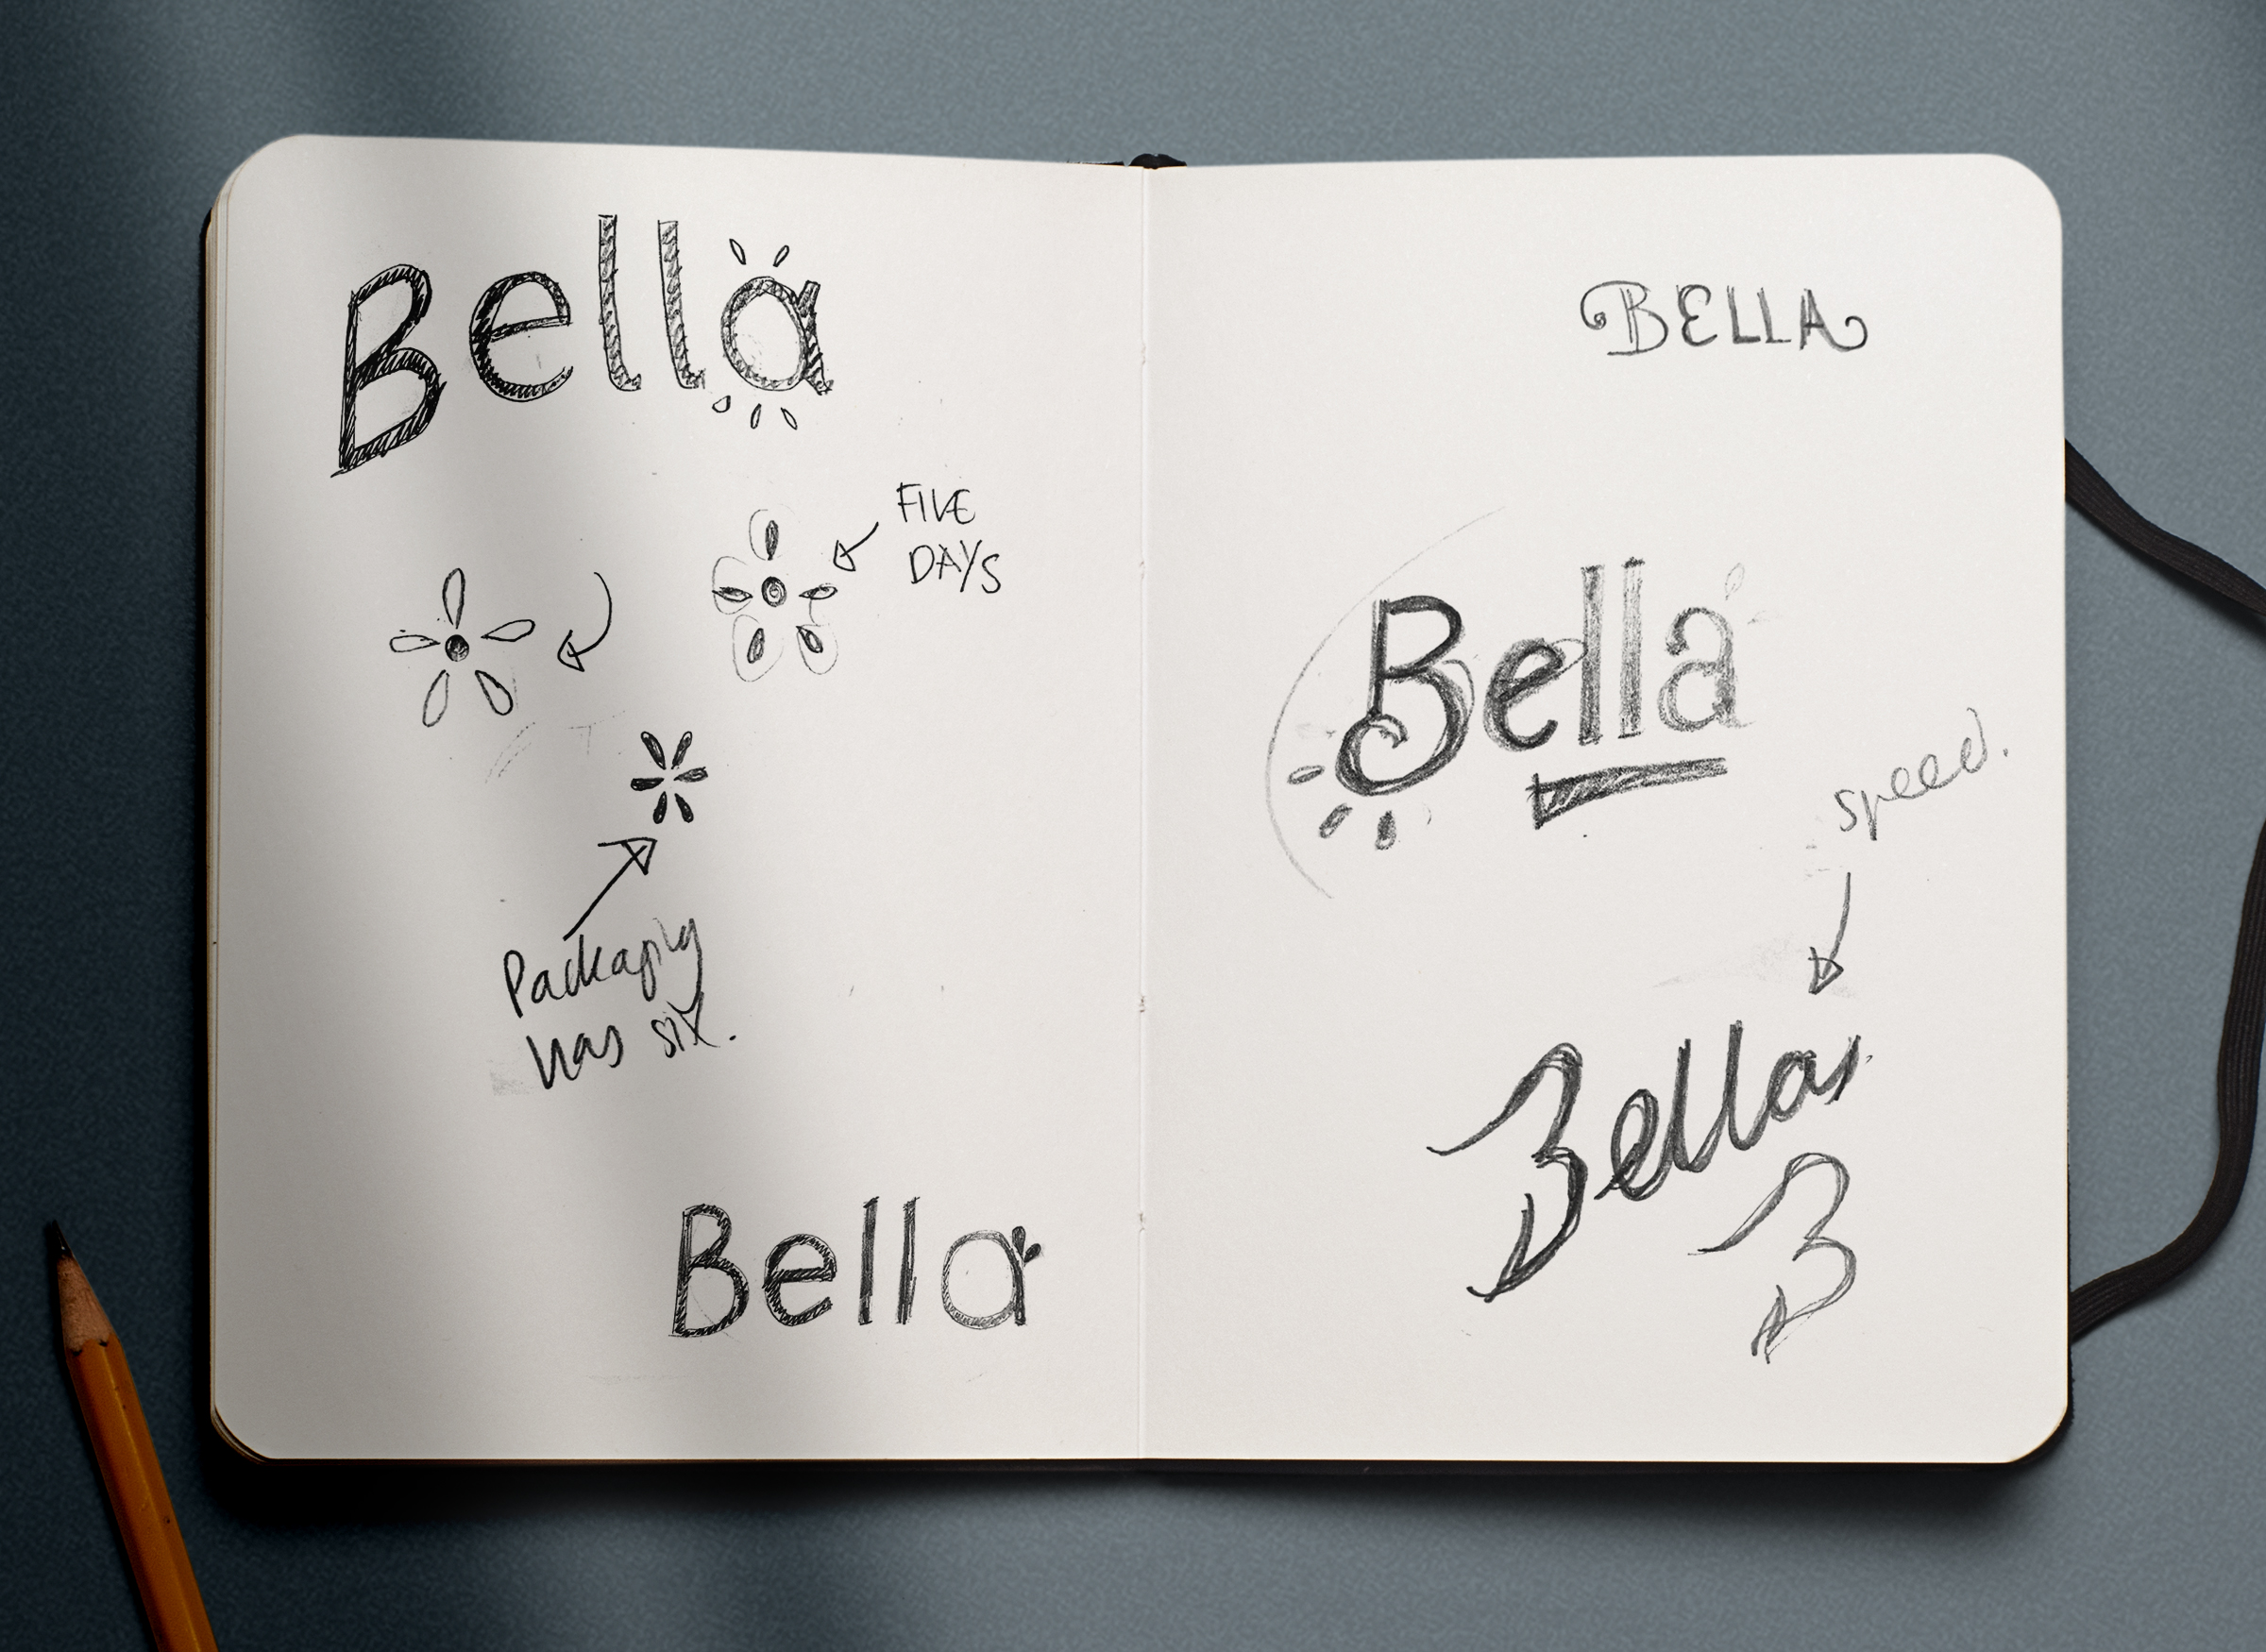 Bella
FIVE
DAYS
Packaging
has six.
Bella
BELLA
Bella
speed.
Bella
B